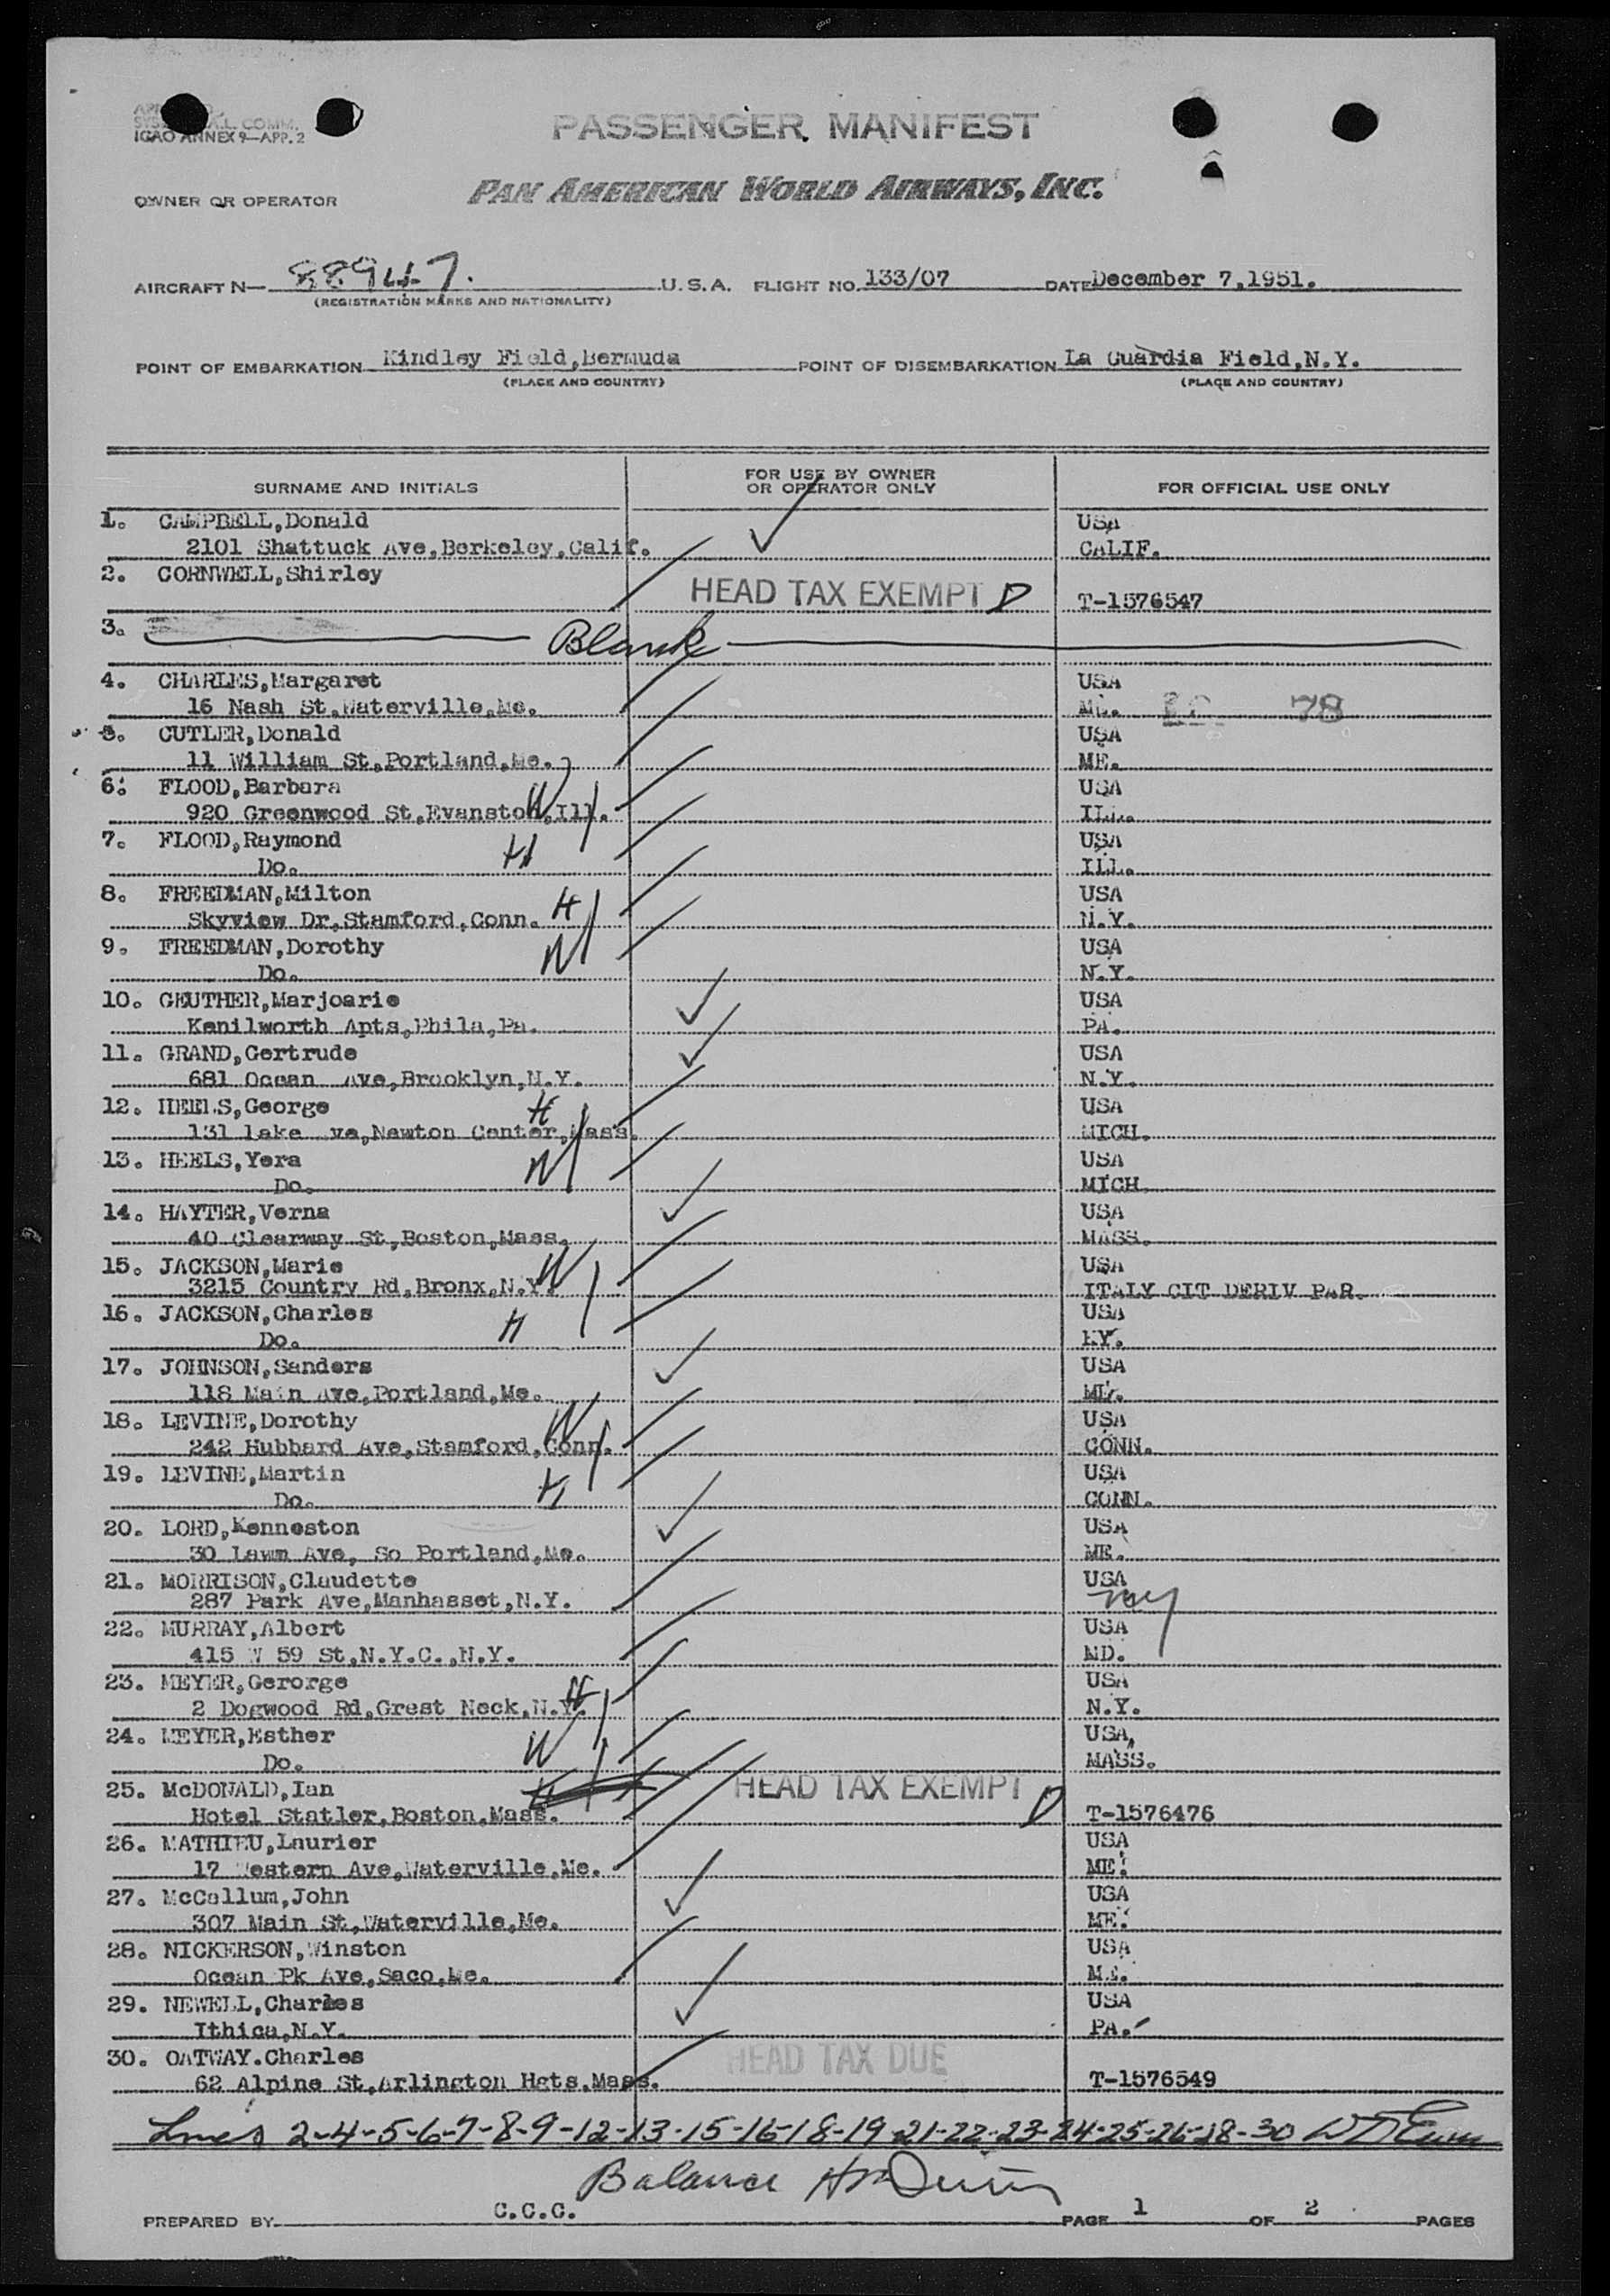 ICAO ANNEX 9—APP. 2
PASSENGER MANIFEST
OWNER OR OPERATOR PAN AMERICAN WORLD AIRWAYS, INC.
AIRCRAFT N— 88947. U.S.A. FLIGHT NO. 133/07 DATE December 7,1951.
(REGISTRATION MARKS AND NATIONALITY)
POINT OF EMBARKATION Kindley Field,Bermuda POINT OF DISEMBARKATION La Guardia Field,N.Y.
(PLACE AND COUNTRY) (PLACE AND COUNTRY)
SURNAME AND INITIALS FOR USE BY OWNER OR OPERATOR ONLY FOR OFFICIAL USE ONLY
1. CAMPBELL,Donald USA
2101 Shattuck Ave,Berkeley,Calif. CALIF.
2. CORNWELL,Shirley
HEAD TAX EXEMPT D T-1576547
3. Blank
4. CHARLES,Margaret USA
16 Nash St,Waterville,Me. ME. 78
5. CUTLER,Donald USA
11 William St,Portland,Me. ME.
6. FLOOD,Barbara USA
920 Greenwood St,Evanston,Ill. W ILL.
7. FLOOD,Raymond H USA
Do. ILL.
8. FREEDMAN,Milton H USA
Skyview Dr,Stamford,Conn. N.Y.
9. FREEDMAN,Dorothy W USA
Do. N.Y.
10. GEUTHER,Marjoarie USA
Kenilworth Apts,Phila,Pa. PA.
11. GRAND,Gertrude USA
681 Ocean Ave,Brooklyn,N.Y. N.Y.
12. HEELS,George H USA
131 Lake ve,Newton Center,Mass. MICH.
13. HEELS,Vera W USA
Do. MICH.
14. HAYTER,Verna USA
40 Clearway St,Boston,Mass. MASS.
15. JACKSON,Marie W USA
3215 Country Rd,Bronx,N.Y. ITALY CIT DERIV PAR.
16. JACKSON,Charles H USA
Do. KY.
17. JOHNSON,Sanders USA
118 Main Ave,Portland,Me. ME.
18. LEVINE,Dorothy W USA
242 Hubbard Ave,Stamford,Conn. CONN.
19. LEVINE,Martin H USA
Do. CONN.
20. LORD,Kenneston USA
30 Lawm Ave, So Portland,Me. ME.
21. MORRISON,Claudette USA
287 Park Ave,Manhasset,N.Y. NY
22. MURRAY,Albert USA
415 W 59 St,N.Y.C.,N.Y. ND.
23. MEYER,Gerorge H USA
2 Dogwood Rd,Grest Neck,N.Y. N.Y.
24. MEYER,Esther W USA,
Do. MASS.
25. McDONALD,Ian HEAD TAX EXEMPT D
Hotel Statler,Boston,Mass. T-1576476
26. MATHIEU,Laurier USA
17 Western Ave,Waterville,Me. ME.
27. McCallum,John USA
307 Main St,Waterville,Me. ME.
28. NICKERSON,Winston USA
Ocean Pk Ave,Saco,Me. ME.
29. NEWELL,Charles USA
Ithica,N.Y. PA.
30. OATWAY.Charles HEAD TAX DUE
62 Alpine St,Arlington Hgts,Mass. T-1576549
Lines 2-4-5-6-7-8-9-12-13-15-16-18-19-21-22-23-24-25-26-28-30
Balance
PREPARED BY C.C.C. PAGE 1 OF 2 PAGES